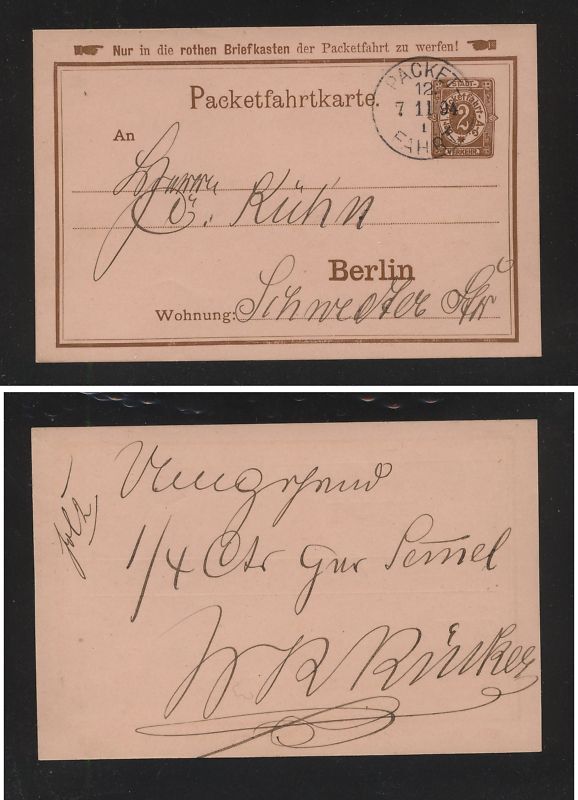 Nur in die rothen Briefkasten der Packetfahrt zu werfen!
Packetfahrtkarte.
PACKET
12
7 11 94
1
FAHRT
STADT-
Packetfahrt-A.G.
2
VERKEHR
An
Herrn
C. Kühn
Berlin
Wohnung: Schwedter Str
Umgehend
1/4 Ctr
W R Rücker